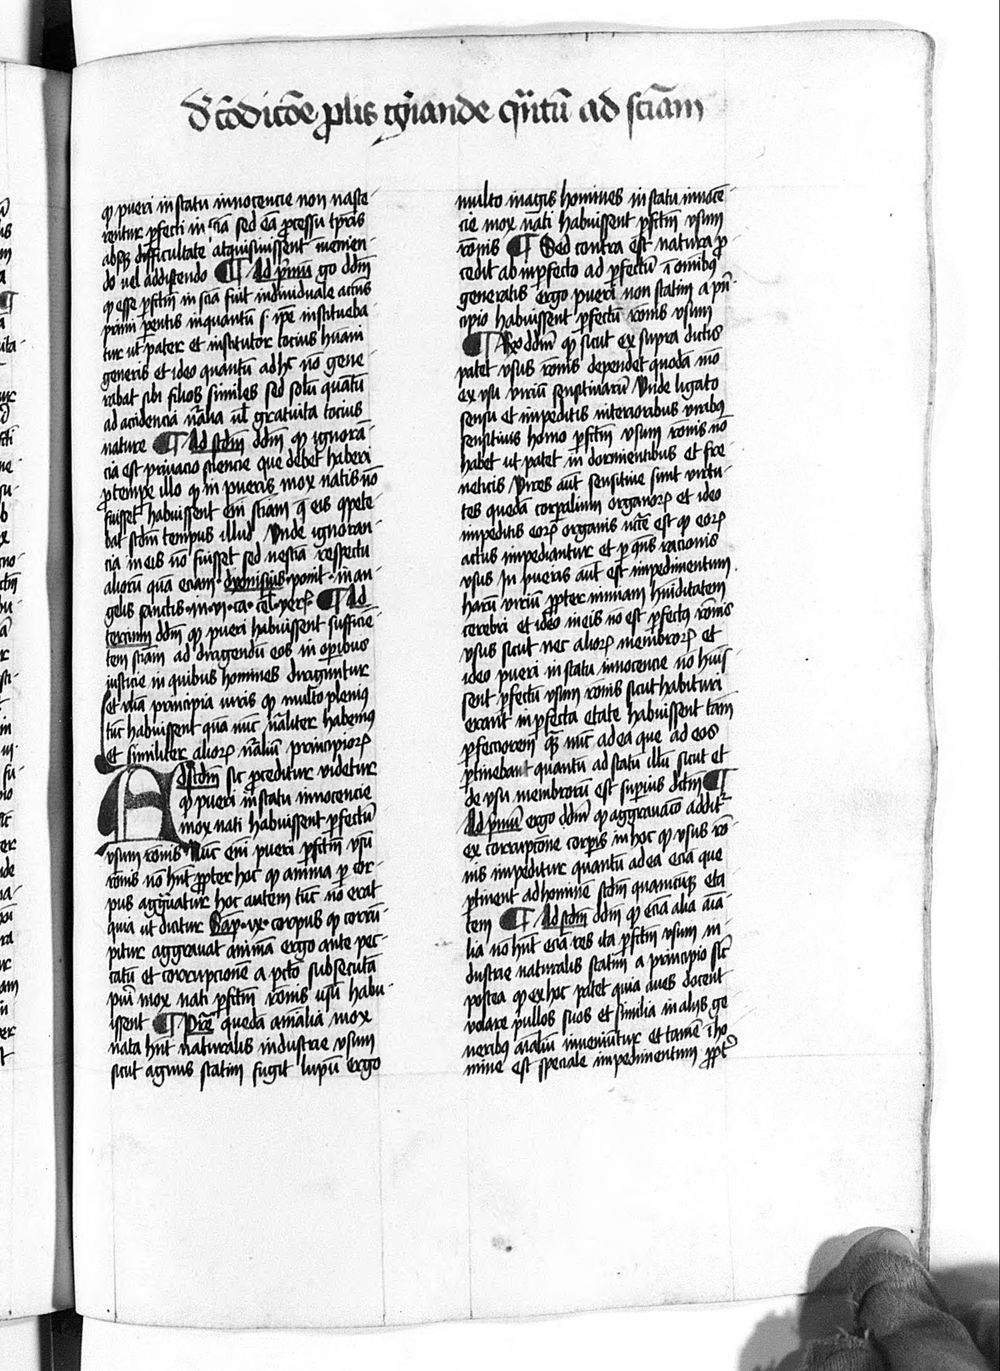 De cōdicōe prolis gn̄ande q̄ntū ad sciām
q pueri in statu innocencie non nasce-
rentur perfecti in sciā sed eā processu tp̄ris
absq; difficultate acquisiuissent inuenien-
do vel addiscendo ¶ Ad p̄mū go dd̄m
q esse pfc̄m in sciā fuit indiuiduale actus
primi parentis inquantū s. ip̄e institueba-
tur ut pater et institutor tocius hūani
generis et ideo quantū ad hc nō gene-
rabat sibi filios similes sed solū quātū
ad accidencia nālia ul̄ gratuita tocius
nature ¶ Ad scd̄m dd̄m q ignorā-
cia est priuacio sciencie que debet haberi
pro tempe illo q in pueris mox natis nō
fuisset habuissent eni sciam q̄ eis cōpete-
bat scdm̄ tempus illud. Vnde ignoran-
cia in eis nō fuisset sed nescia respectu
alioru quā eciam dyonisius ponit in an-
gelis sanctis in vi ca cel yer ¶ Ad
tercium dd̄m q pueri habuissent sufficiē-
tem sciam ad dirigendū eos in opibus
iusticie in quibus homines diriguntur
et vlia principia iuris q multo plenius
tūc habuissent quā nūc nāliter habemus
et similiter alioꝝ nāliū principioꝝ
Ad scdm̄ sic proceditur videtur
q pueri in statu innocencie
mox nati habuissent perfectū
vsum rōnis Nūc eni pueri pfc̄m vsū
rōnis nō hn̄t propter hoc q anima p cor-
pus aggrauatur hoc autem tūc nō erat
quia ut dicitur Sap ix corpus q corrū-
pitur aggrauat animā ergo ante pec-
catū et corrupcionē a pctō subsecutā
puī mox nati pfc̄m rōnis usū habu-
issent ¶ Pre queda aīalia mox
nata hn̄t naturalis industrie vsum
sicut agnus statim fugit lupū ergo
multo magis homines in statu innocē-
cie mox nati habuissent pfc̄m vsum
rōnis ¶ Sed contra est natura pro-
cedit ab inperfecto ad pfectū ī omībus
generatis ergo pueri non statim a prī-
cipio habuissent pfectū rōnis vsum
¶ Rō dd̄m q sicut ex supra dictis
patet vsus rōnis dependet quodā mō
ex vsu viriū sensitiuarū Vnde ligato
sensu et impeditis interioribus viribus
sensitiuis homo pfc̄m vsum rōnis nō
habet ut patet in dormientibus et fre-
neticis Vires aūt sensitiue sunt virtu-
tes quedā corpalium organoꝝ et ideo
impeditis eoꝝ organis nc̄e est q eoꝝ
actus impediantur et p q̄ns racionis
vsus In pueris aūt est impedimentum
harū viriū propter nimiam hūiditatem
cerebri et ideo in eis nō est pfectus rōnis
vsus sicut nec alioꝝ membroꝝ et
ideo pueri in statu innocencie nō huis-
sent pfectū vsum rōnis sicut habituri
erant in pfecta etate habuissent tam̄
pfectiorem q̄ nūc ad ea que ad eos
ptinebant quantū ad statū illū sicut et
de vsu membrorū est supius dictm̄ ¶
Ad p̄mū ergo dd̄m q aggrauacō additr
ex corrupcione corpis in hoc q vsus rō-
nis impeditur quantū ad ea ecia que
ptinent ad hominē scdm̄ quamcūq; eta-
tem ¶ Ad scdm̄ dd̄m q ecia alia aīa-
lia nō hn̄t ecia res ita pfc̄m vsum in-
dustrie naturalis statim a principio sic
postea q ex hoc patet quia aues docent
volare pullos suos et similia in aliis ge-
neribus aīaliū inueniūtur et tamē ī ho-
mine est speciale impedimentum propt